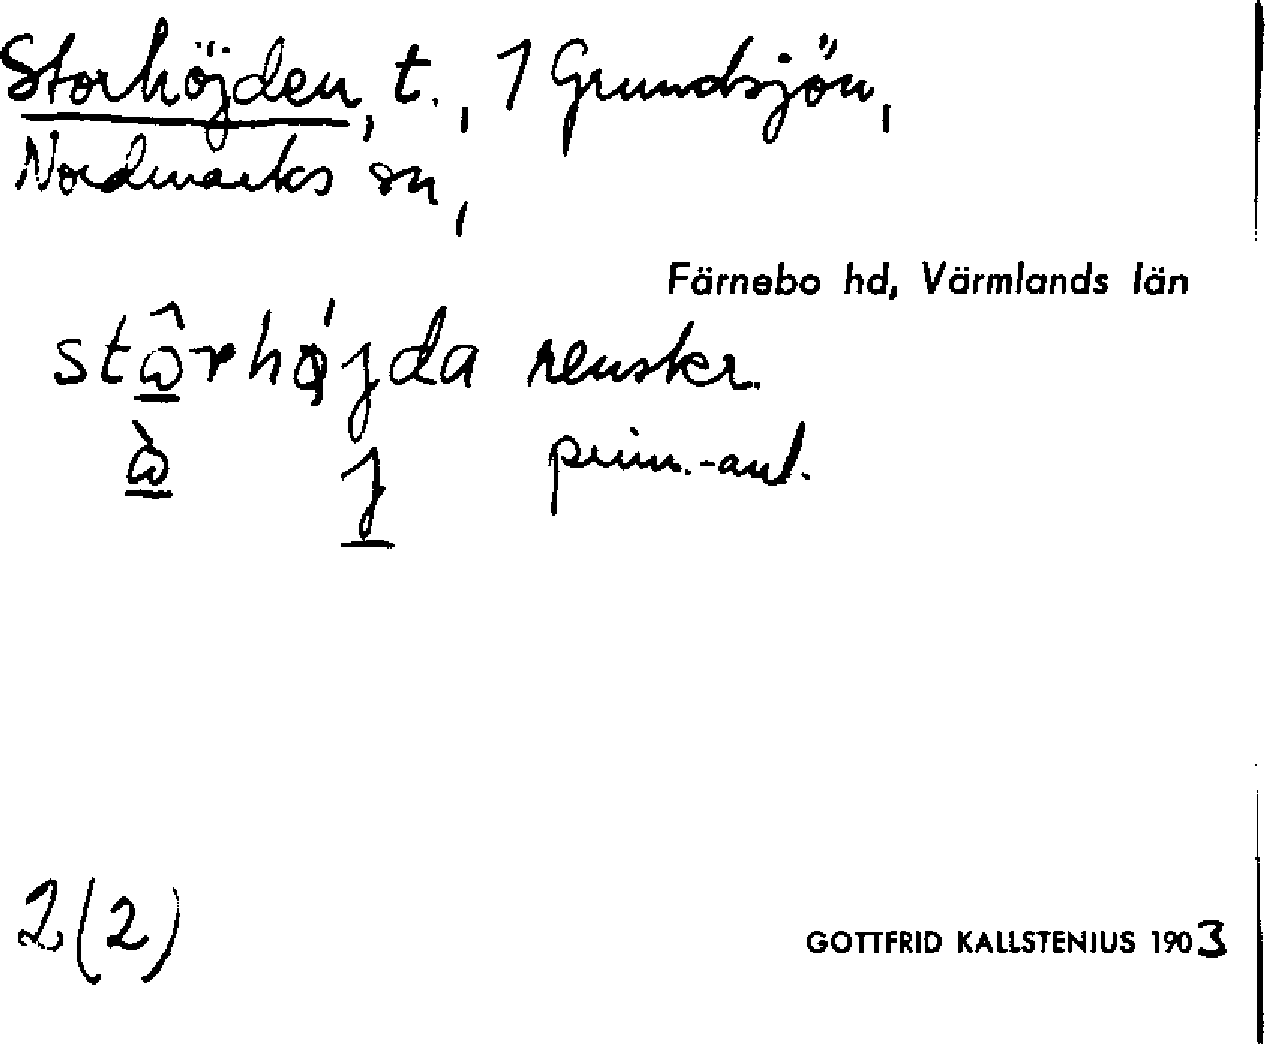 Storhöjden, t., 1 Grundsjön,
Nordmarks sn,
Färnebo hd, Värmlands län
stω̲̂rhǿjda renskr.
ὼ̲ j̲ prim.-ant.
2(2)
GOTTFRID KALLSTENIUS 1903